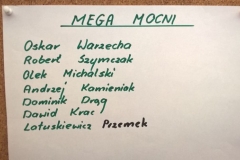 MEGA MOCNI
Oskar Warzecha
Robert Szymczak
Olek Michalski
Andrzej Kamieniok
Dominik Drąg
Dawid Krac
Lotuskiewicz Przemek